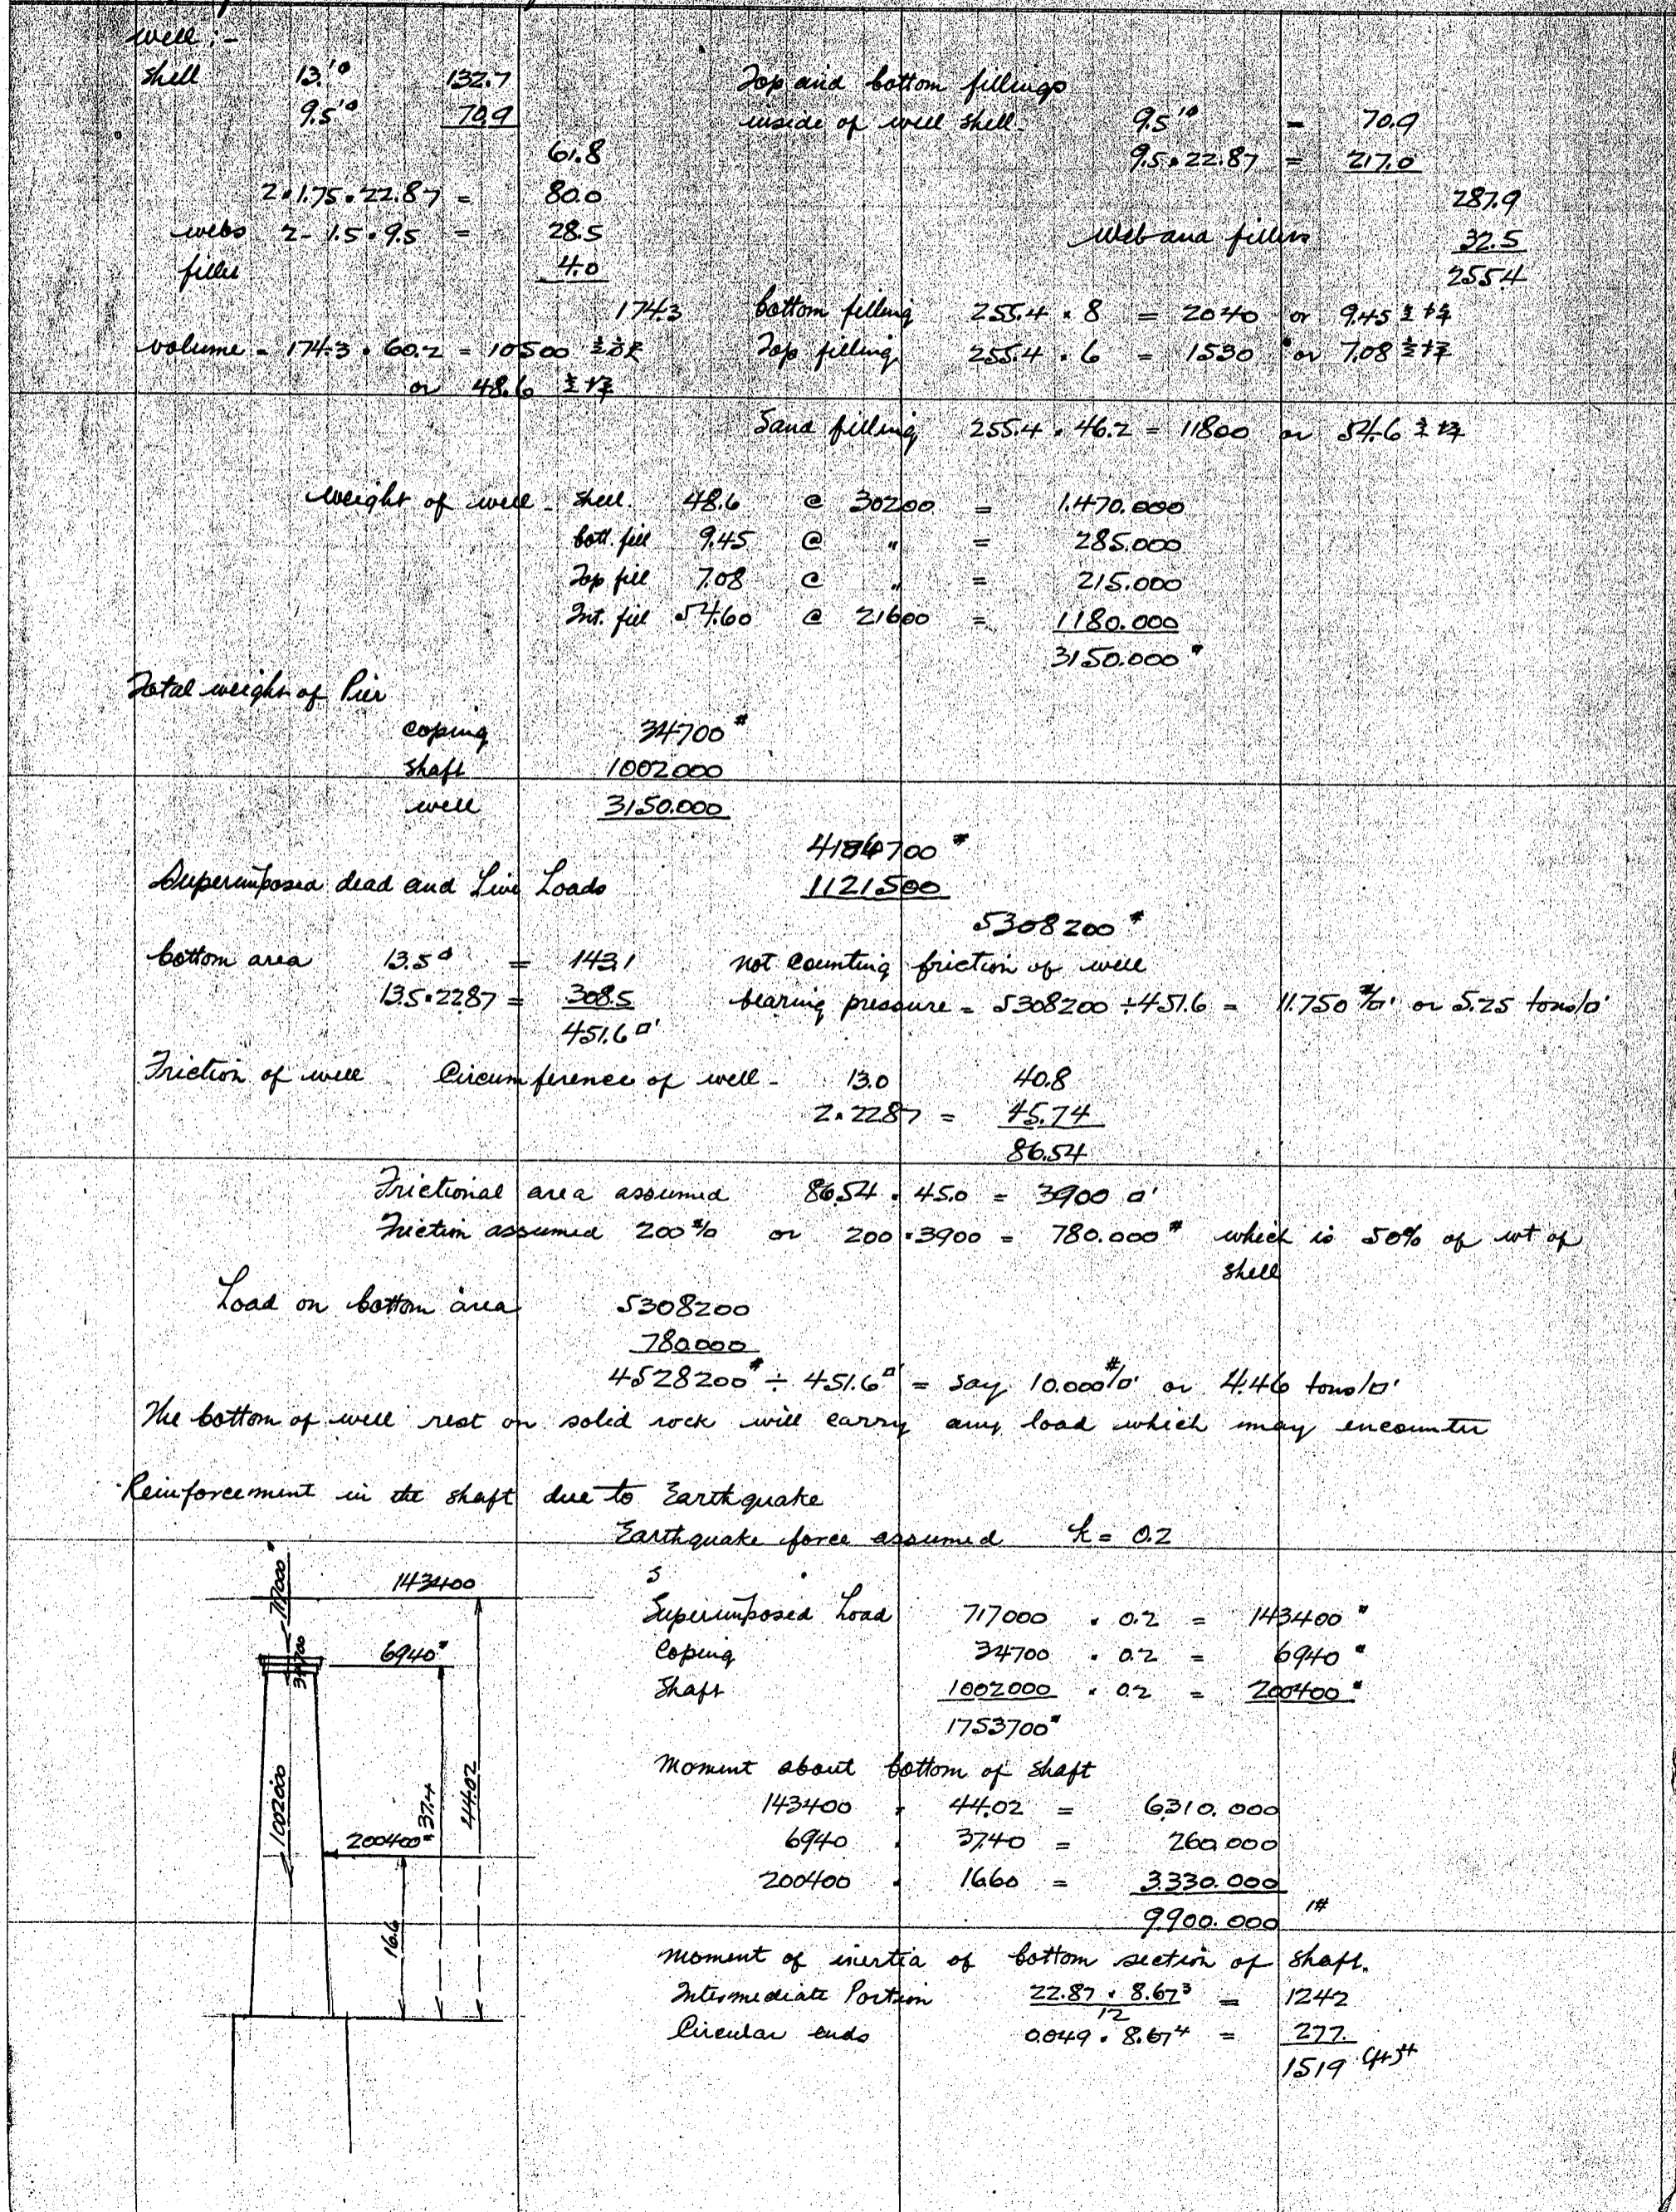 well:-
shell 13.'ø 132.7
9.5'ø 70.9
61.8
2×1.75×22.87 = 80.0
webs 2-1.5×9.5 = 28.5
fillet 4.0
174.3
volume = 174.3 × 60.2 = 10500 立方尺
or 48.6 立坪
Top and bottom fillings
inside of well shell- 9.5'ø = 70.9
9.5×22.87 = 217.0
287.9
Web and fillers 32.5
255.4
bottom filling 255.4 × 8 = 2040 or 9.45 立坪
Top filling 255.4 × 6 = 1530 or 7.08 立坪
Sand filling 255.4 × 46.2 = 11800 or 54.6 立坪
weight of well - shell. 48.6 @ 30200 = 1.470.000
bott. fill 9.45 @ " = 285.000
Top fill 7.08 @ " = 215.000
Int. fill 54.60 @ 21600 = 1180.000
3150.000#
Total weight of Pier
coping 34700#
shaft 1002000
well 3150.000
4186700#
Superimposed dead and Live Loads 1121500
5308200#
bottom area 13.5ø = 143.1 not counting friction of well
13.5×22.87 = 308.5 bearing pressure = 5308200 ÷ 451.6 = 11.750 #/□' or 5.25 tons/□'
451.6□'
Friction of well Circumference of well- 13.0 40.8
2×22.87 = 45.74
86.54
Frictional area assumed 86.54 × 45.0 = 3900 □'
Friction assumed 200#/□ or 200×3900 = 780.000# which is 50% of wt of
shell
Load on bottom area 5308200
780.000
4528200# ÷ 451.6□' = say 10.000#/□' or 4.46 tons/□'
The bottom of well rest on solid rock will carry any load which may encounter
Reinforcement in the shaft due to Earthquake
Earthquake force assumed k = 0.2
s
Superimposed Load 717000 × 0.2 = 143400#
Coping 34700 × 0.2 = 6940#
Shaft 1002000 × 0.2 = 200400#
1753700#
Moment about bottom of shaft
143400 × 44.02 = 6310.000
6940 × 37.40 = 260.000
200400 × 16.60 = 3.330.000
9.900.000 '#
Moment of inertia of bottom section of shaft.
Intermediate Portion 22.87 × 8.67³ / 12 = 1242
Circular ends 0.049 × 8.67⁴ = 277.
1519 (ft)⁴
717000#
143400
34700
6940#
1002000
200400#
37.4
44.02
16.6